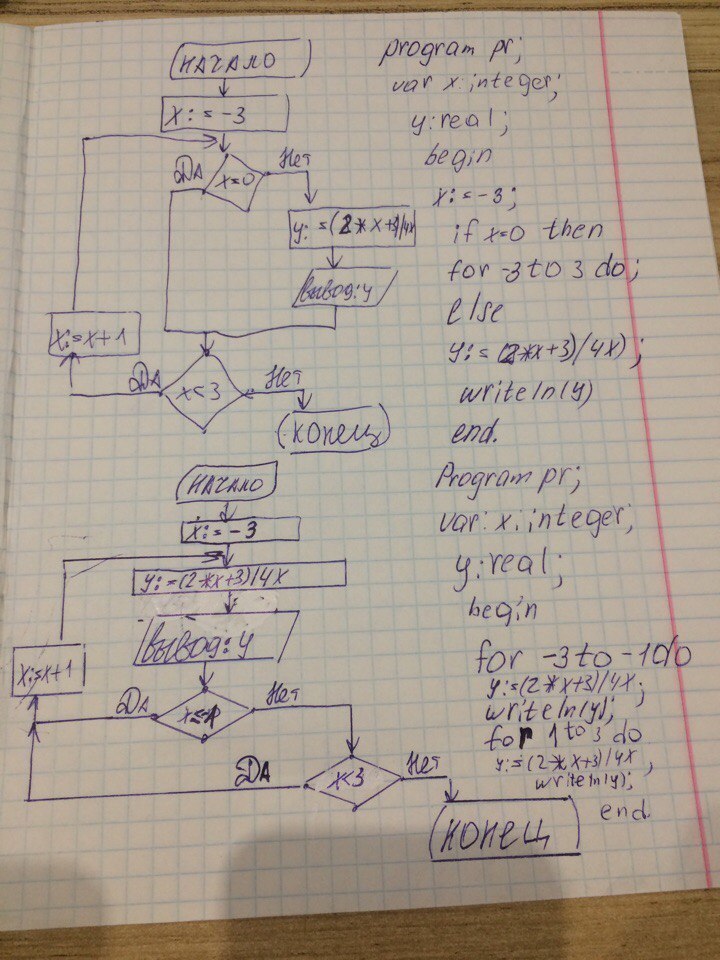 НАЧАЛО
X:=-3
ДА
Нет
X=0
y:=(2*x+3)/4x
Вывод:y
X:=x+1
ДА
x≤3
Нет
(КОНЕЦ)
НАЧАЛО
X:=-3
y:=(2*x+3)/4x
Вывод:y
X:=x+1
ДА
Нет
ДА
x<3
Нет
КОНЕЦ
program pr;
var x:integer;
y:real;
begin
x:=-3;
if x=0 then
for -3 to 3 do;
else
y:=(2*x+3)/4x);
writeln(y)
end.
Program pr;
var: x:integer;
y:real;
begin
for -3 to -1 do
y:=(2*x+3)/4x;
writeln(y);
for 1 to 3 do
y:=(2*x+3)/4x;
writeln(y);
end.